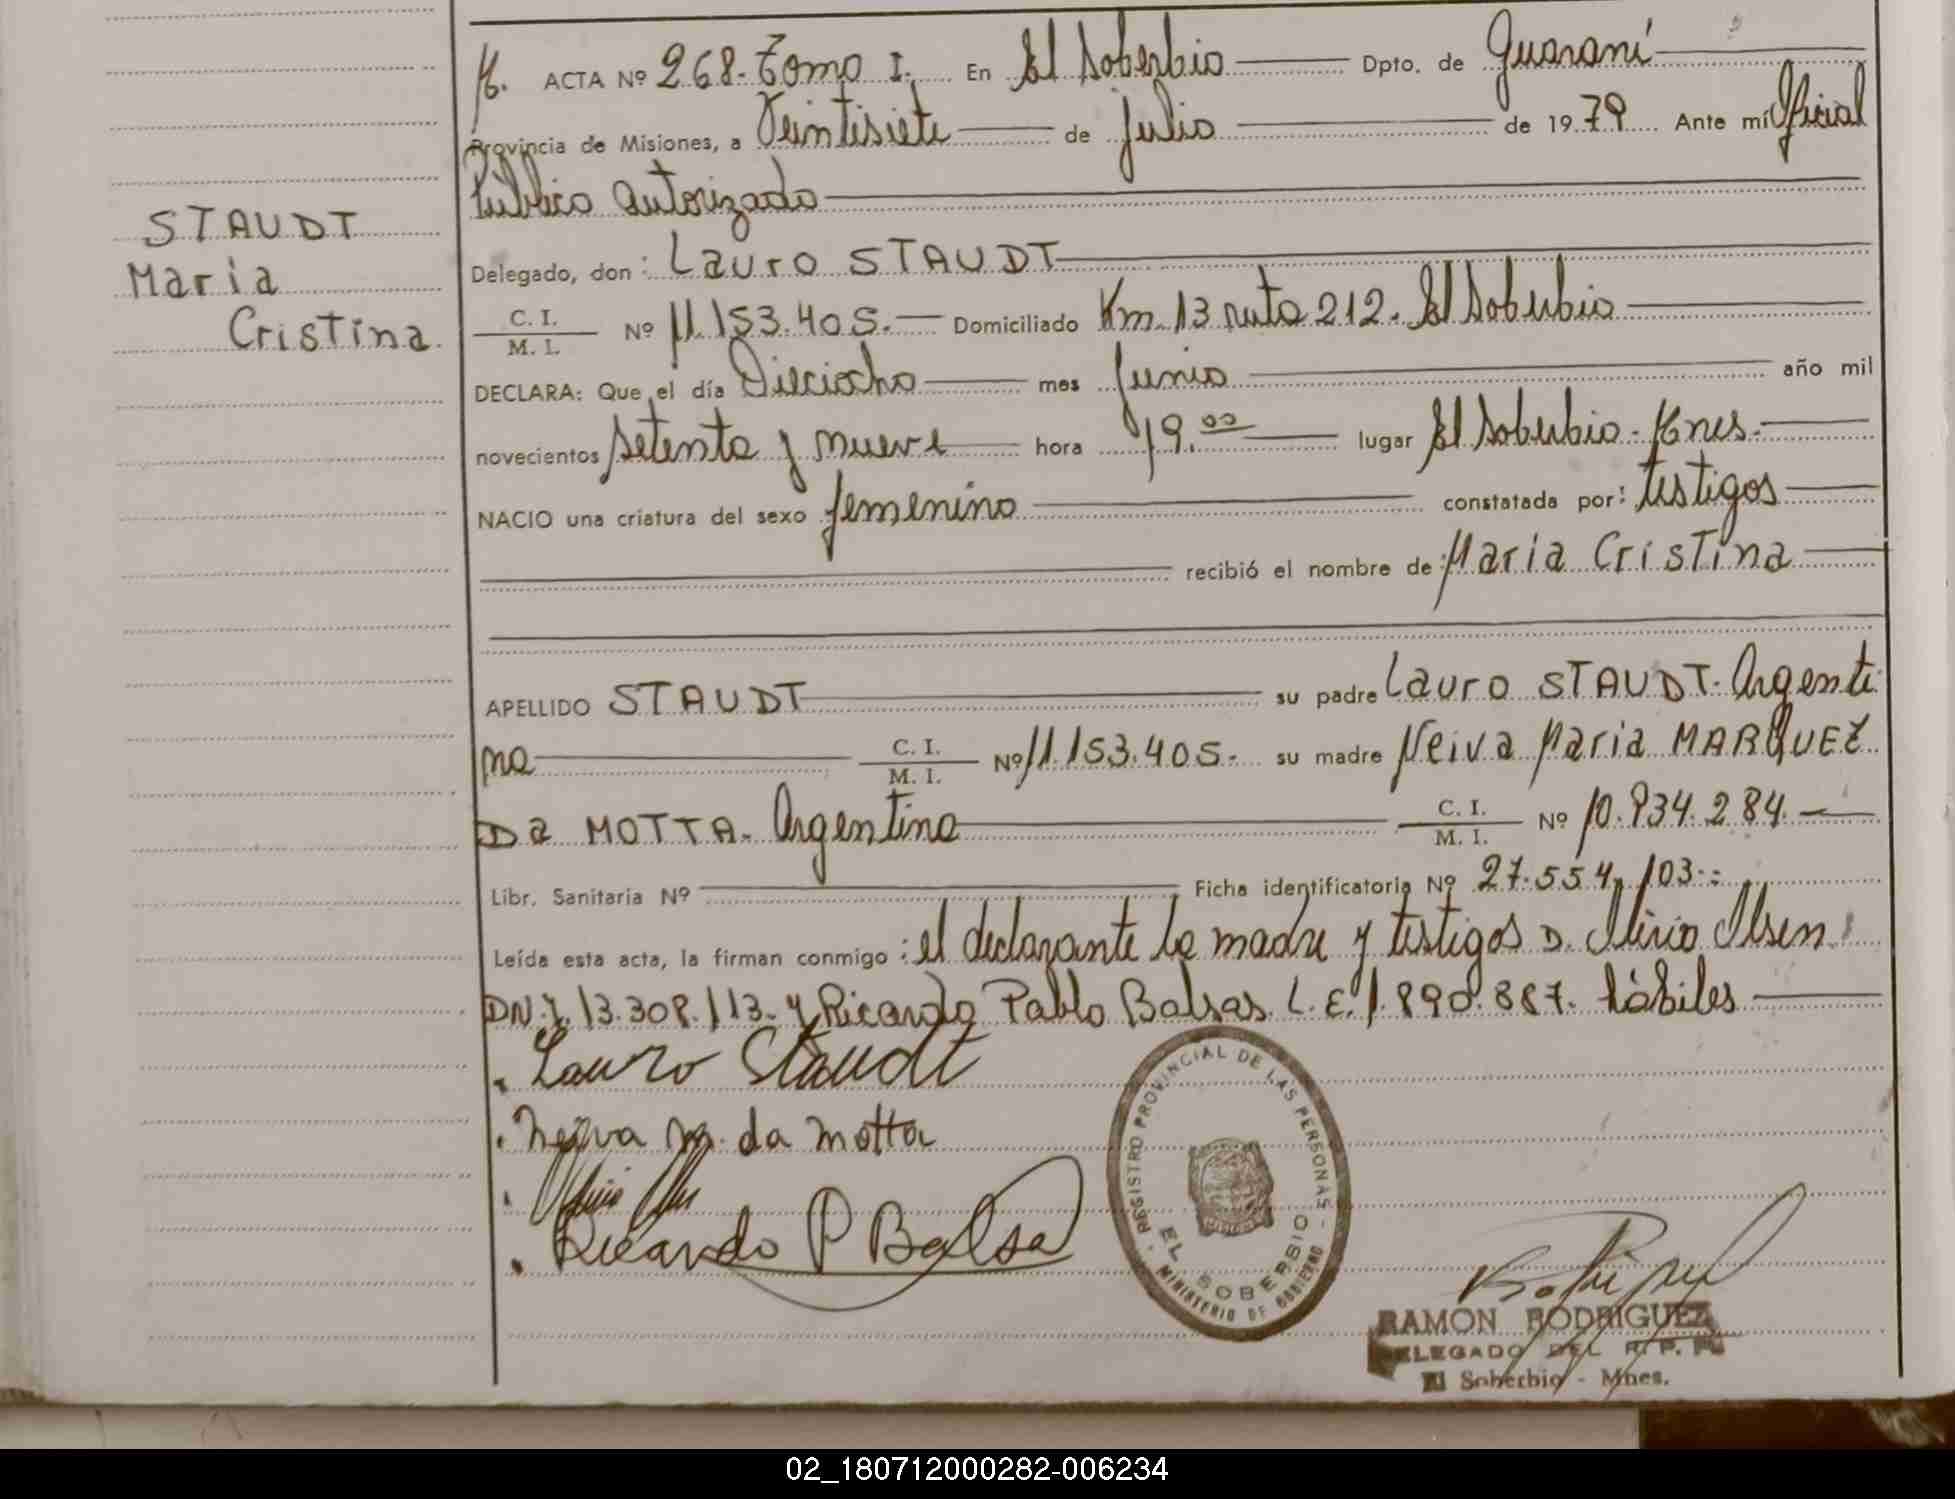 ACTA Nº 268. Tomo I. En El Soberbio Dpto. de Guaraní
Provincia de Misiones, a Veintisiete de Julio de 1979 Ante mí Oficial
Público autorizado
STAUDT
Delegado, don: Lauro STAUDT
Maria
C. I.
M. I. Nº 11.153.405.- Domiciliado Km. 13 ruta 212. El Soberbio
Cristina.
DECLARA: Que el día Dieciocho mes Junio año mil
novecientos setenta y nueve hora 19.00 lugar El Soberbio - Mnes.-
NACIO una criatura del sexo femenino constatada por: testigos
recibió el nombre de: Maria Cristina
APELLIDO STAUDT su padre Lauro STAUDT. Argenti
no C. I.
M. I. Nº 11.153.405.- su madre Neiva Maria MARQUEZ
Da MOTTA. Argentina C. I.
M. I. Nº 10.934.284.-
Libr. Sanitaria Nº Ficha identificatoria Nº 27.554,103.-
Leída esta acta, la firman conmigo: el declarante la madre y testigos D.
DN.I. 13.308.113. y Ricardo Pablo Balsas. L.E. 1.890.887. hábiles
Lauro Staudt
Neiva M. da Motta
Ricardo P Balsa
REGISTRO PROVINCIAL DE LAS PERSONAS
EL SOBERBIO
MINISTERIO DE GOBIERNO
RAMON RODRIGUEZ
DELEGADO DEL R. P. P.
El Soberbio - Mnes.
02_180712000282-006234